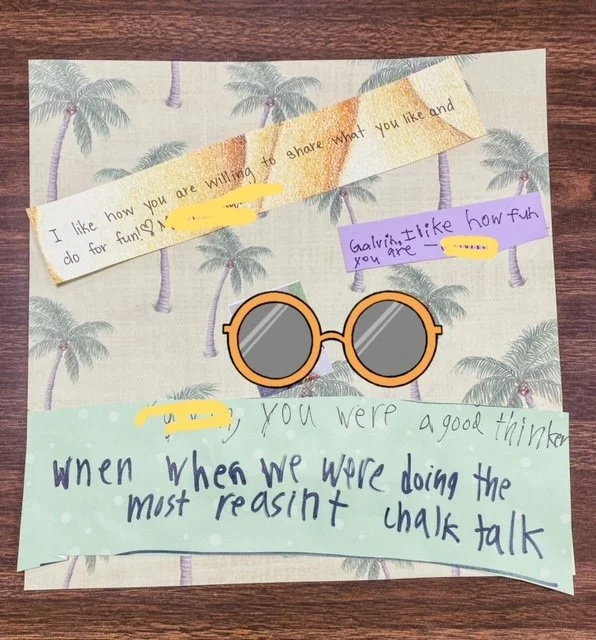 I like how you are willing to share what you like and
do for fun!♡
Galvin, I like how fun
you are –
, you were a good thinker
wnen when we were doing the
most reasint chalk talk